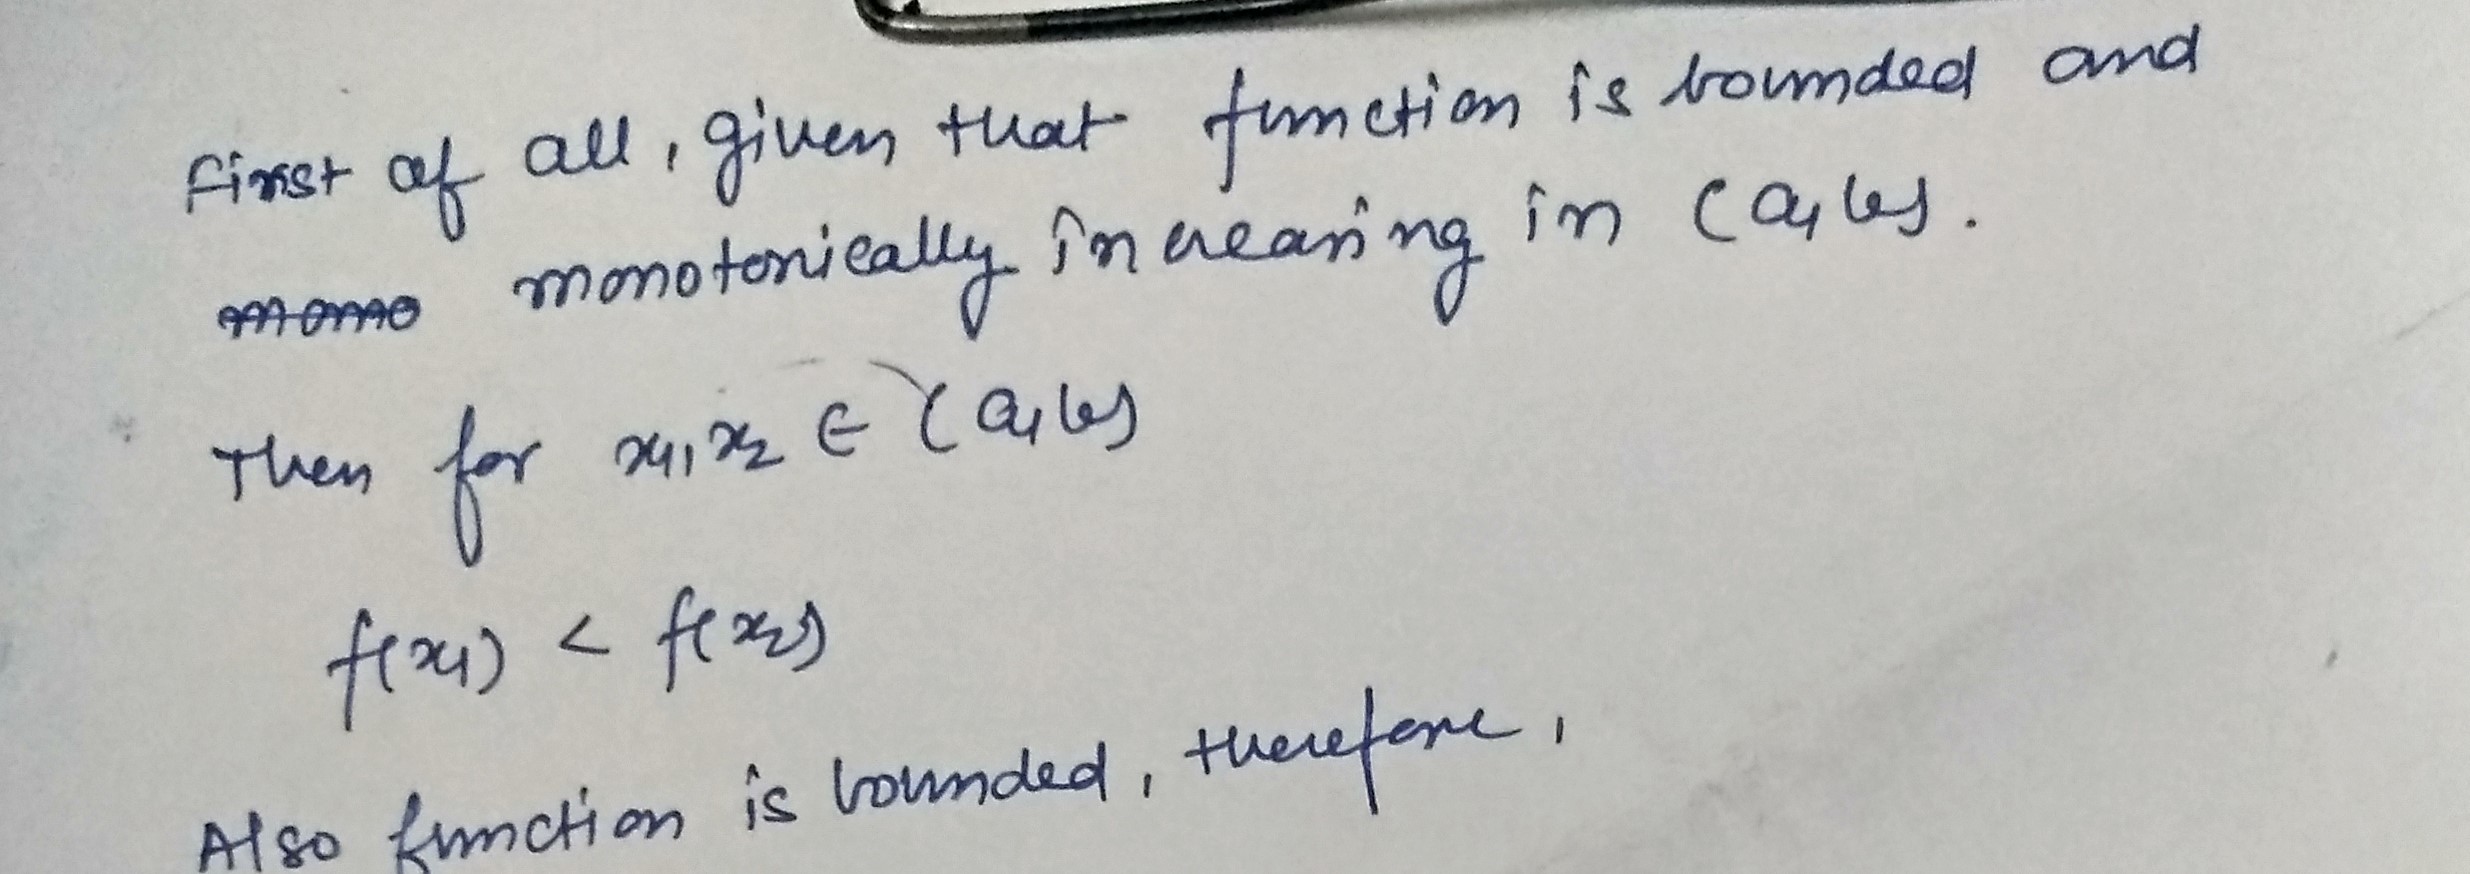 First of all, given that function is bounded and
monotonically increasing in (a, b).
Then for x1, x2 ∈ (a, b)
f(x1) < f(x2)
Also function is bounded, therefore,